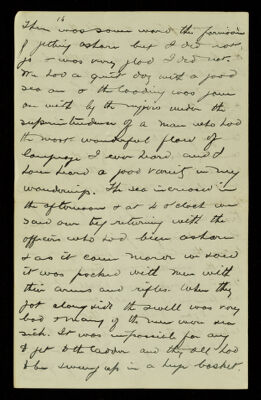 16
There was some word the permission
of getting ashore but I did not
go & was very glad I did not.
We had a quiet day with a good
sea on & the loading was gone
on with by the niggers under the
superintendence of a man who had
the most wonderful flow of
language I ever heard and I
have heard a good variety in my
wanderings. The sea increased in
the afternoon & at 4 o'clock we
saw our tug returning with the
officers who had been ashore
& as it came nearer we saw
it was packed with men with
their arms and rifles. When they
got alongside the swell was very
bad & many of the men were sea
sick. It was impossible for any
to get to the ladder and they all had
to be swung up in a huge basket.